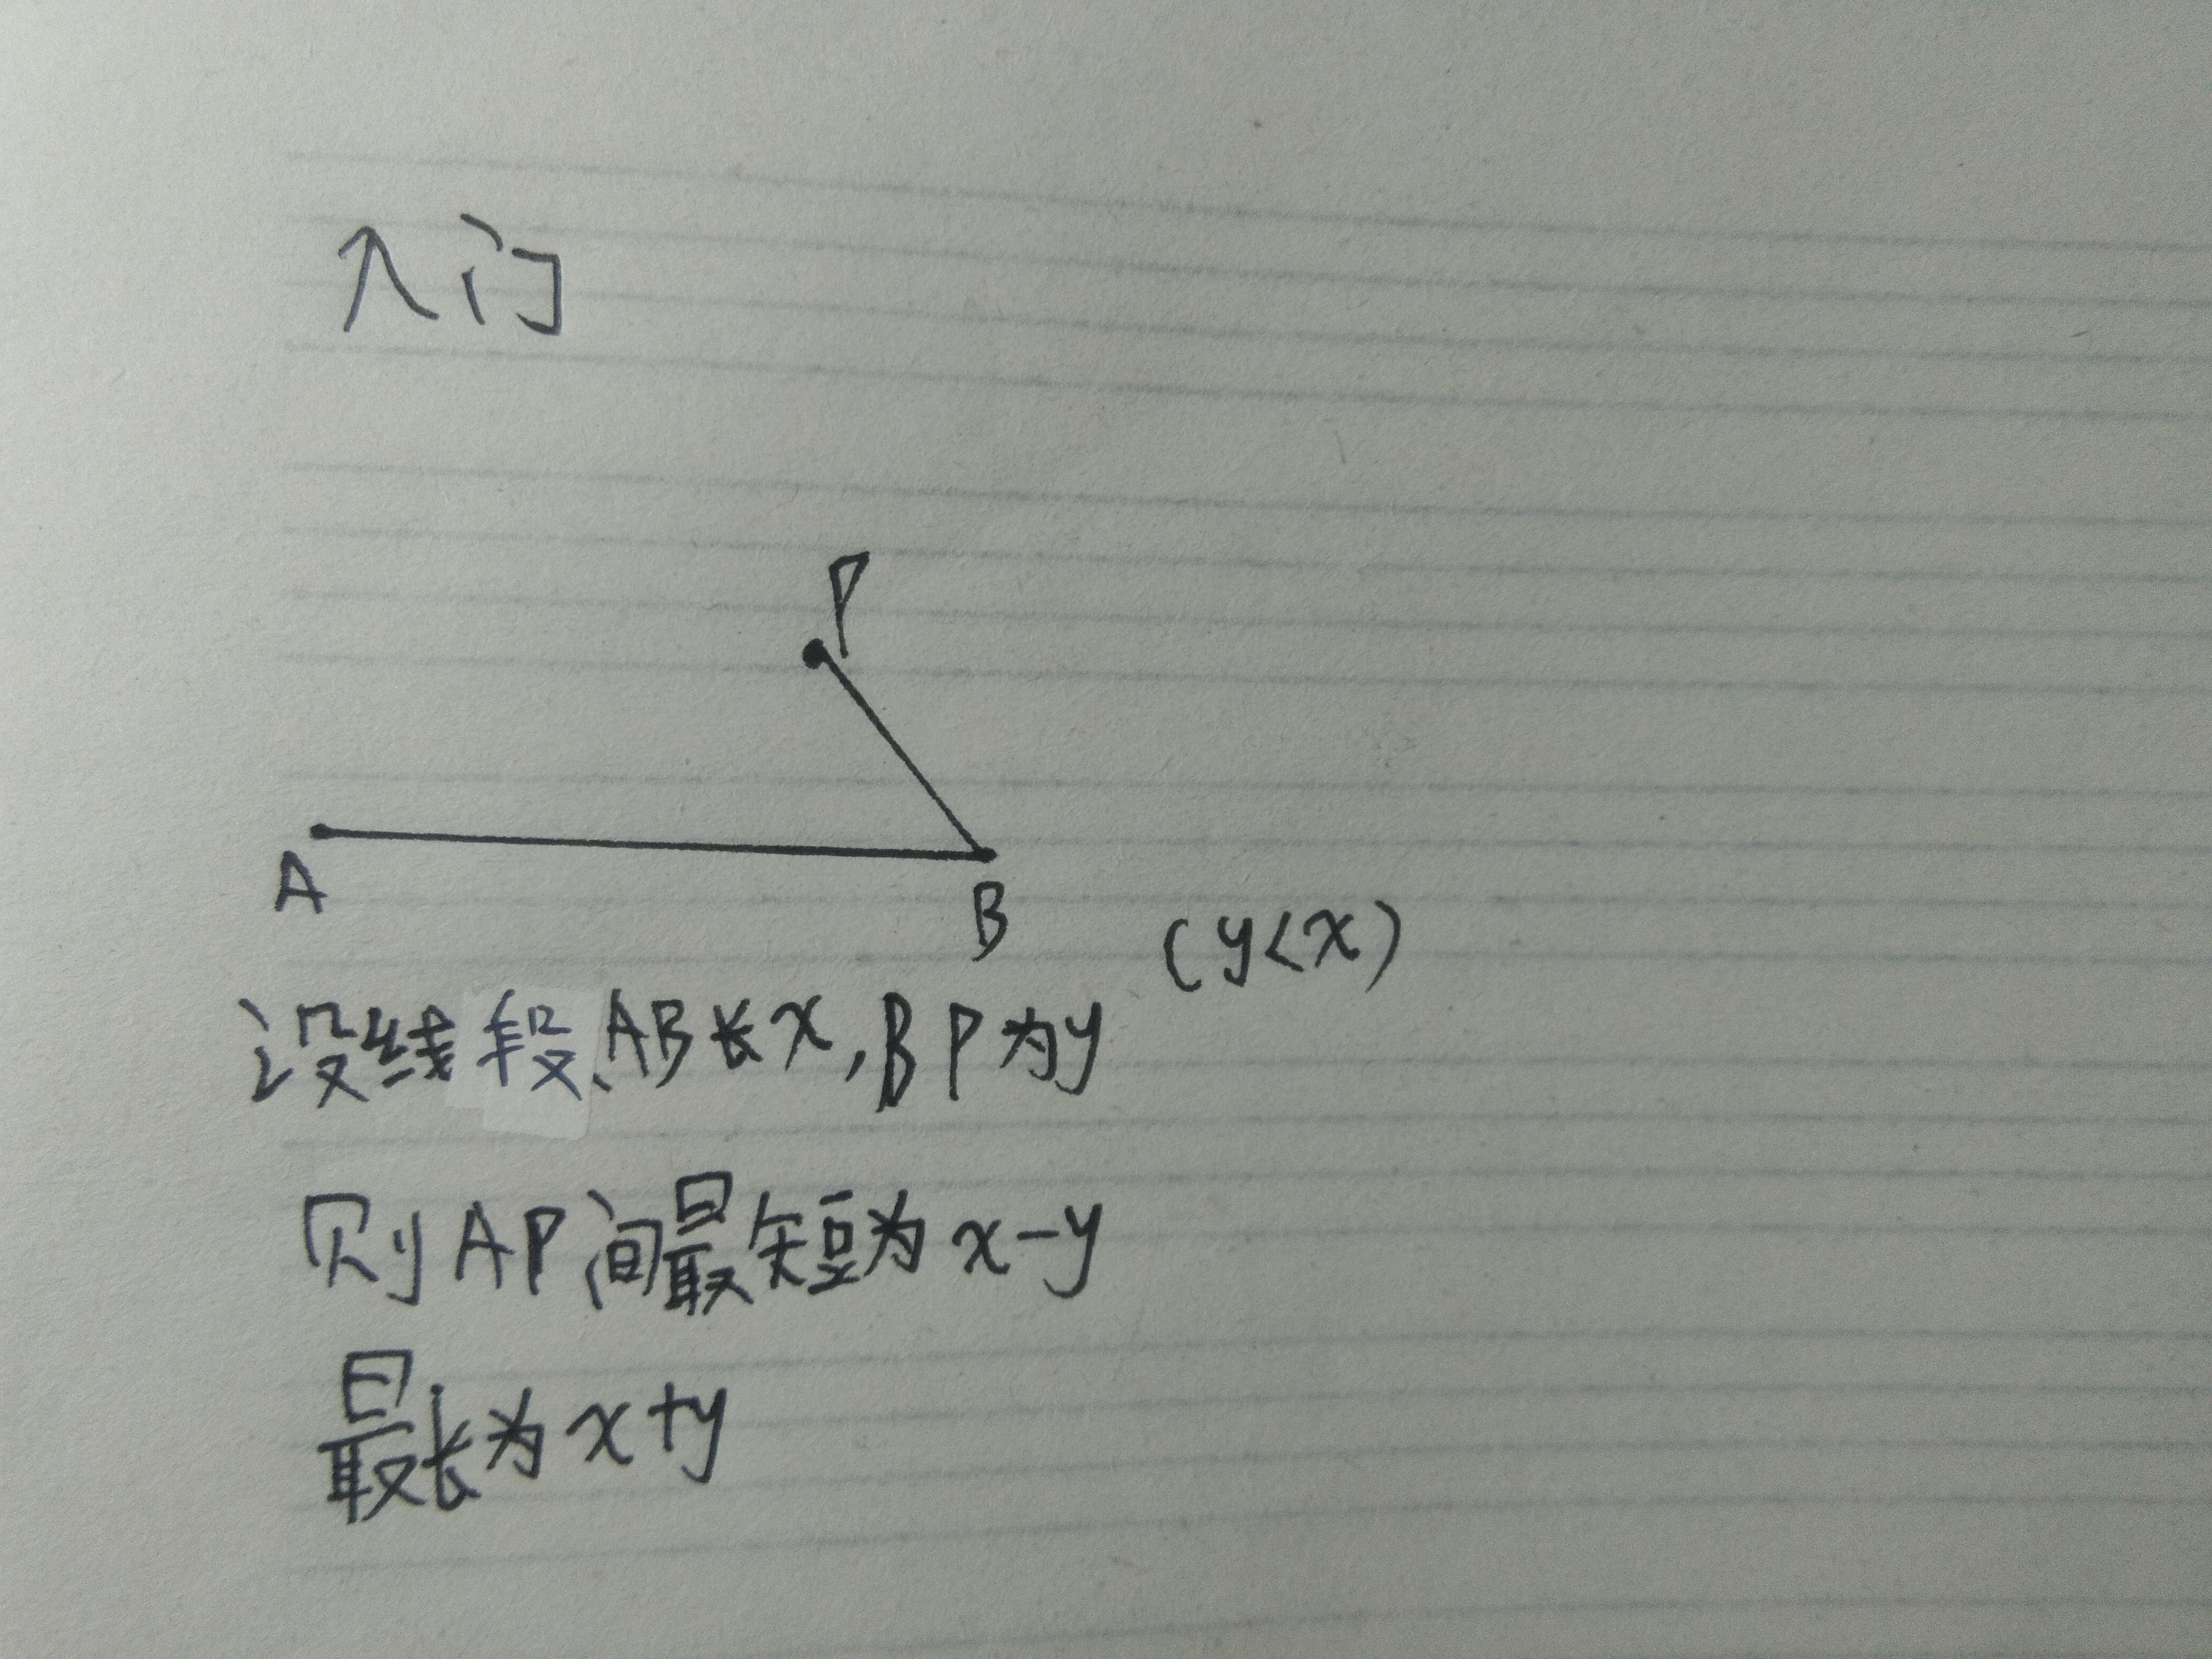 入门
P
A
B
(y<x)
设线段AB长x,BP为y
则AP间最短为x-y
最长为x+y